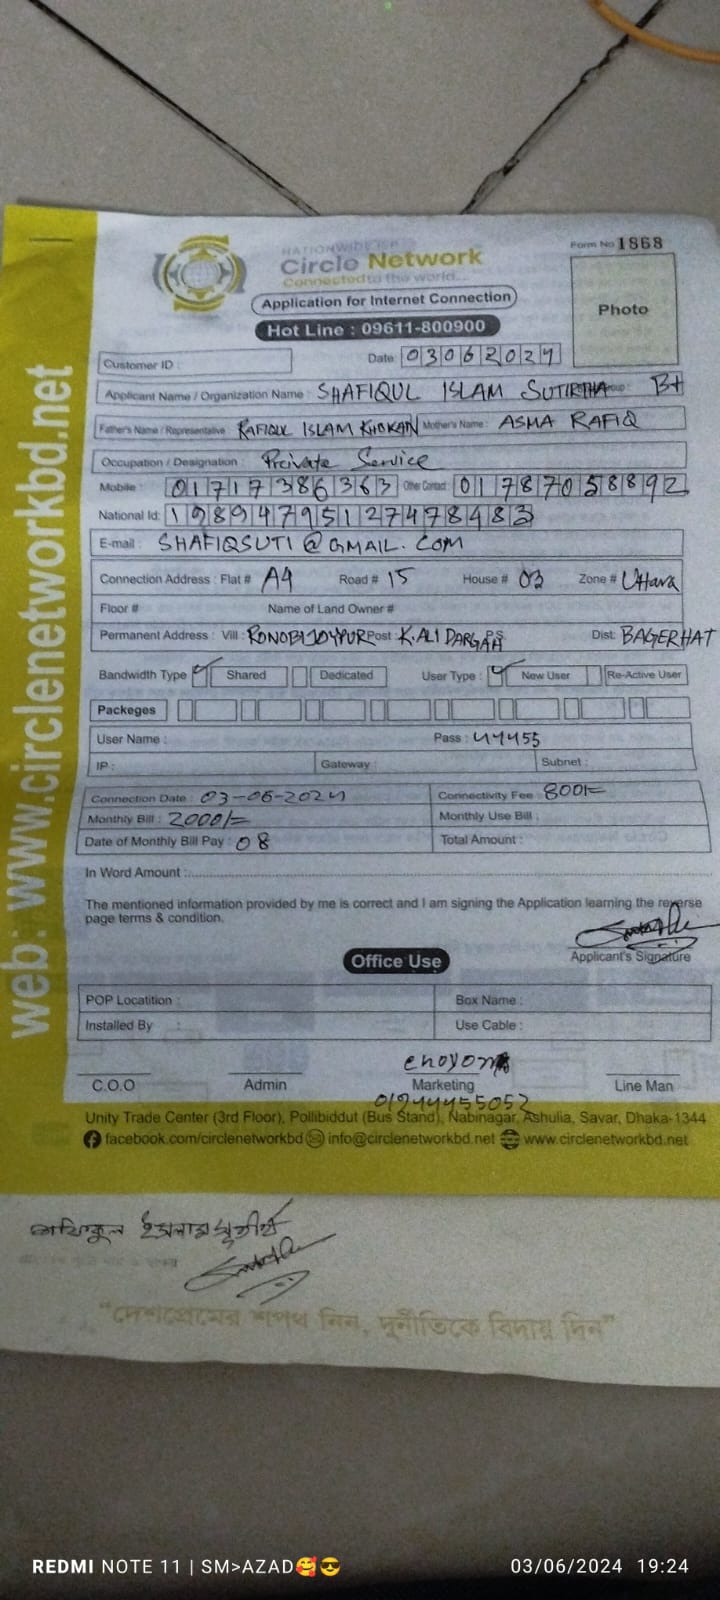 NATIONWIDE ISP
Form No 1868
Circle Network
Connected to the world...
Photo
Application for Internet Connection
Hot Line : 09611-800900
Customer ID :
Date: 03062024
Applicant Name / Organization Name : SHAFIQUL ISLAM SUTIRTHA B+
Father's Name / Representative RAFIQUL ISLAM KHOKAN Mother's Name : ASMA RAFIQ
Occupation / Designation : Private Service
Mobile: 01717386363 Other Contact: 01787058892
National Id: 19894795127478483
E-mail : SHAFIQSUTI@GMAIL.COM
Connection Address : Flat # A4 Road # 15 House # 03 Zone # Uttara
Floor # Name of Land Owner #
Permanent Address : Vill : RONOBIJOYPUR Post : K.ALI DARGAH P.S Dist: BAGERHAT
Bandwidth Type ✓ Shared Dedicated User Type : ✓ New User Re-Active User
Packeges
User Name : Pass : 44455
IP : Gateway : Subnet :
Connection Date : 03-06-2024 Connectivity Fee : 800/=
Monthly Bill : 2000/= Monthly Use Bill :
Date of Monthly Bill Pay : 08 Total Amount :
In Word Amount :
The mentioned information provided by me is correct and I am signing the Application learning the reverse
page terms & condition.
Applicant's Signature
Office Use
POP Locatition : Box Name :
Installed By : Use Cable :
C.O.O Admin Marketing Line Man
01944455052
Unity Trade Center (3rd Floor), Pollibiddut (Bus Stand), Nabinagar, Ashulia, Savar, Dhaka-1344
facebook.com/circlenetworkbd info@circlenetworkbd.net www.circlenetworkbd.net
web: www.circlenetworkbd.net
শফিকুল ইসলাম সুতীর্থ
"দেশপ্রেমের শপথ নিন, দুর্নীতিকে বিদায় দিন"
REDMI NOTE 11 | SM>AZAD🥰😎 03/06/2024 19:24